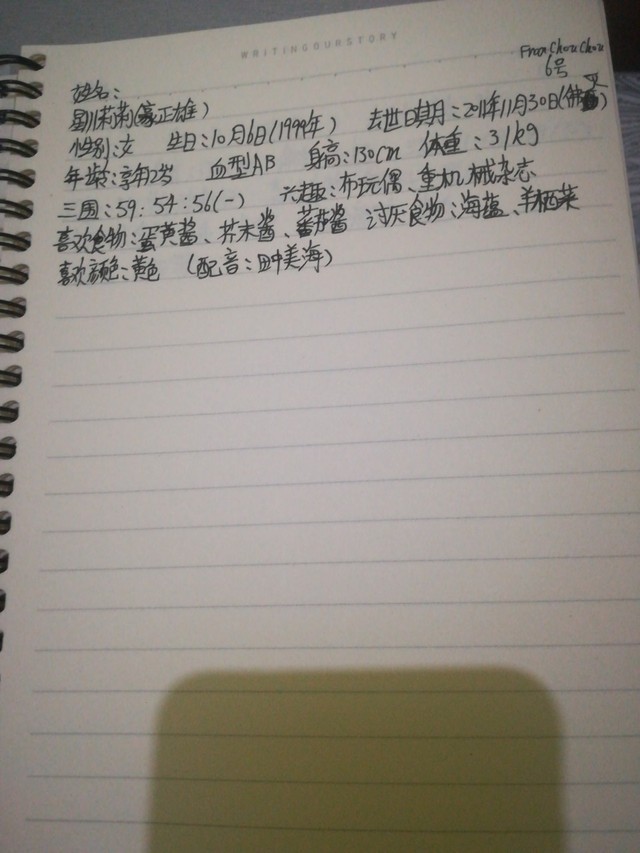 WRITINGOURSTORY
FranChouChou
6号
姓名:
星川莉莉(豪正雄)
性别:女 生日:10月6日(1999年) 去世日期:2011年11月30日(
年龄:享年12岁 血型AB 身高:130cm 体重:31kg
三围:59:54:56(-) 兴趣:布玩偶、重机械杂志
喜欢食物:蛋黄酱、芥末酱、蕃茄酱 讨厌食物:海蕴、羊栖菜
喜欢颜色:黄色 (配音:田中美海)